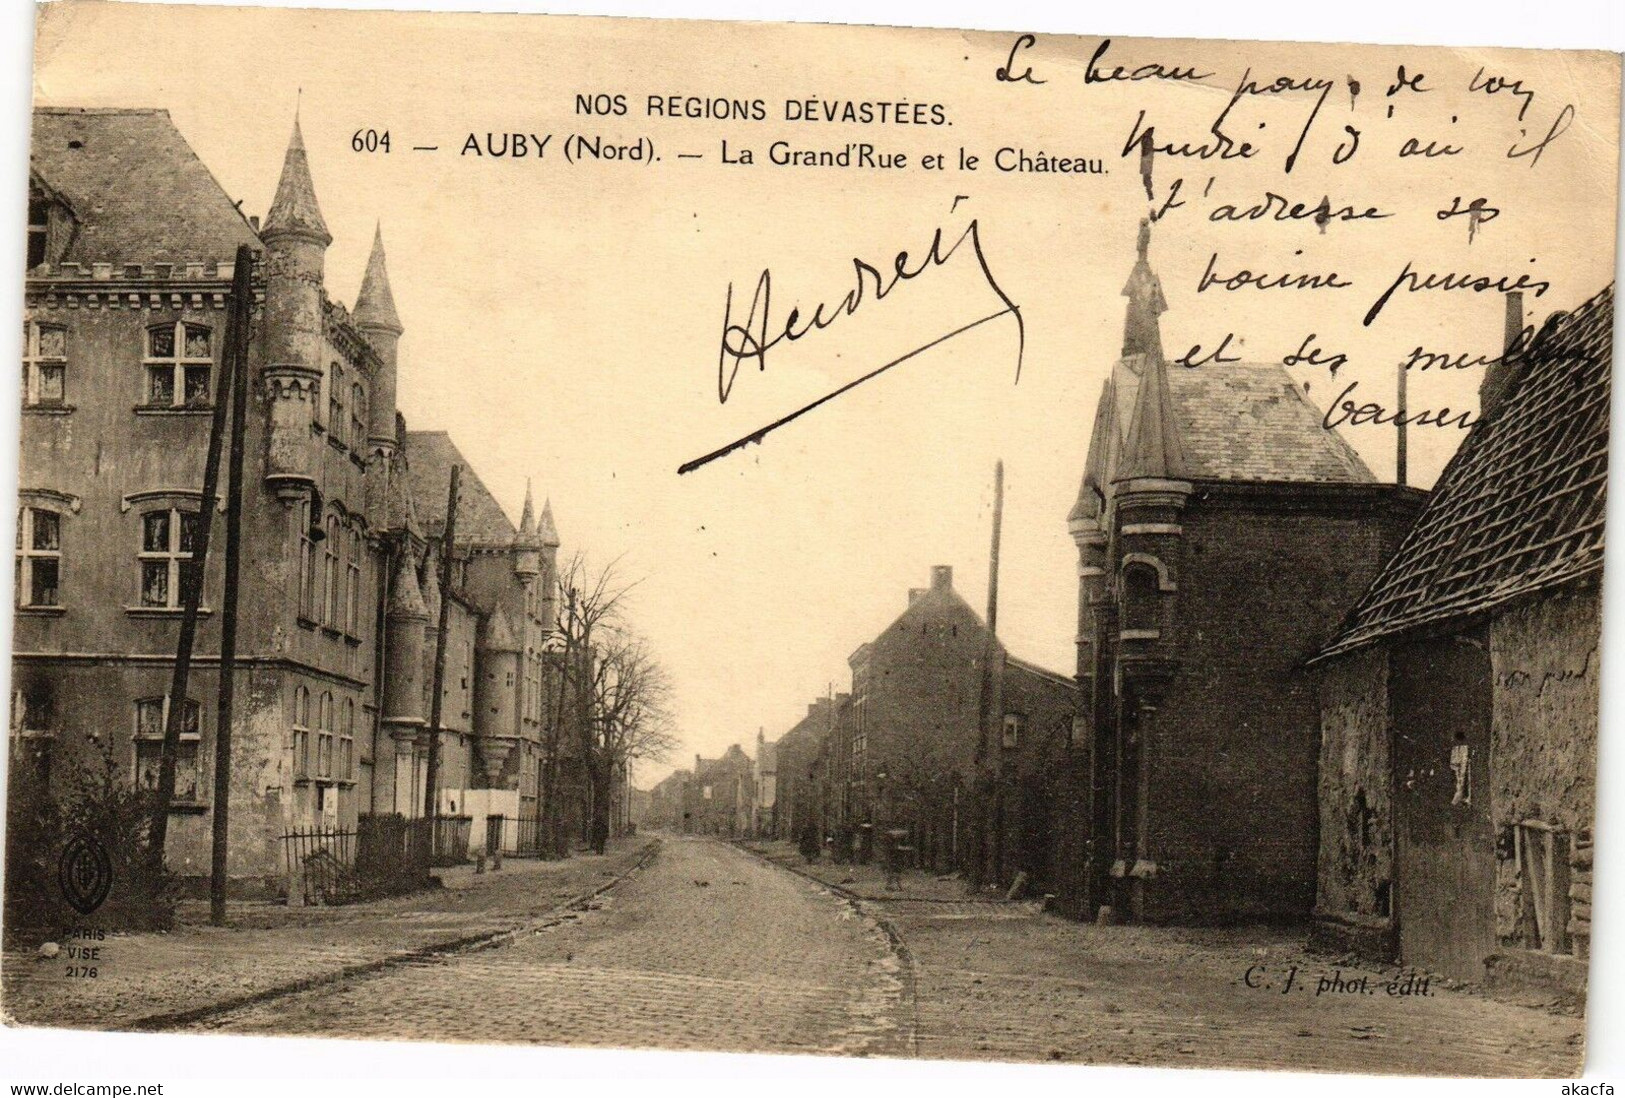 NOS REGIONS DÉVASTÉES.
604 — AUBY (Nord). — La Grand'Rue et le Château.
Le beau pays de ton
André, d'où il
t'adresse ses
bonne pensées
et ses meilleurs
baisers
André
PARIS
VISÉ
2176
C. J. phot. édit.
akacfa